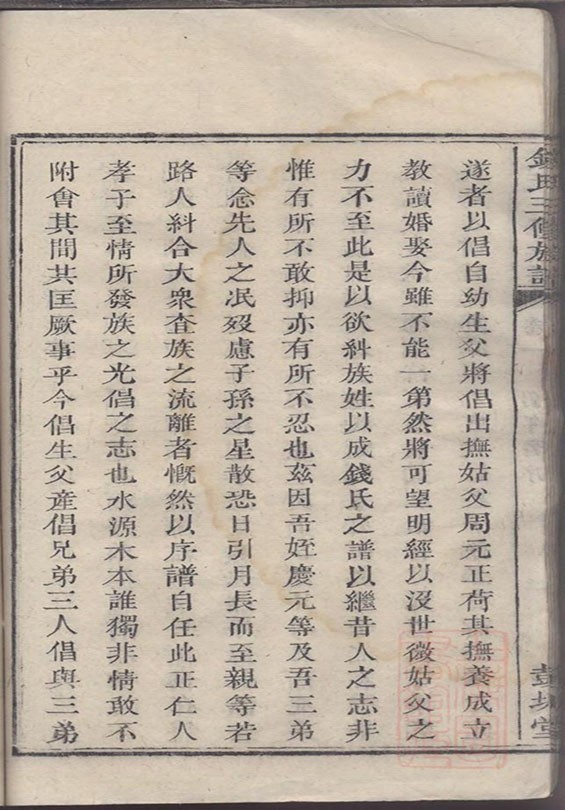 遂者以倡自幼生父將倡出撫姑父周元正荷其撫養成立
教讀婚娶今雖不能一第然將可望明經以沒世微姑父之
力不至此是以欲糾族姓以成錢氏之譜以繼昔人之志非
惟有所不敢抑亦有所不忍也茲因吾姪慶元等及吾三弟
等念先人之泯歿慮子孫之星散恐日引月長而至親等若
路人糾合大衆查族之流離者慨然以序譜自任此正仁人
孝子至情所發族之光倡之志也水源木本誰獨非情敢不
附會其間共匡厥事乎今倡生父産倡兄弟三人倡與三弟
錢氏三修族譜
彭城堂